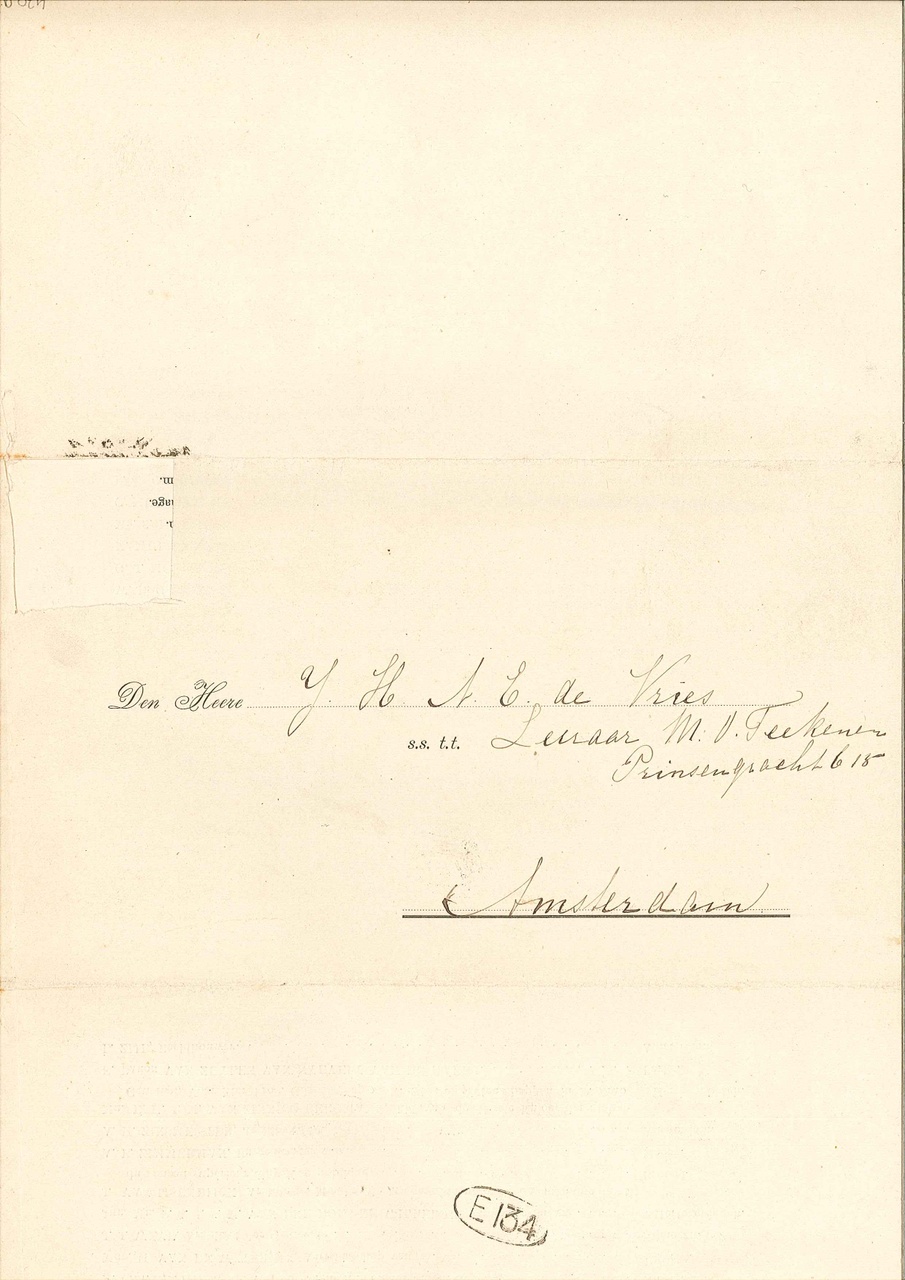 m.
age.
Den Heere Y. H. N. E. de Vries
s.s. t.t. Leeraar M. O. Teekenen
Prinsengracht 615
Amsterdam
E 134